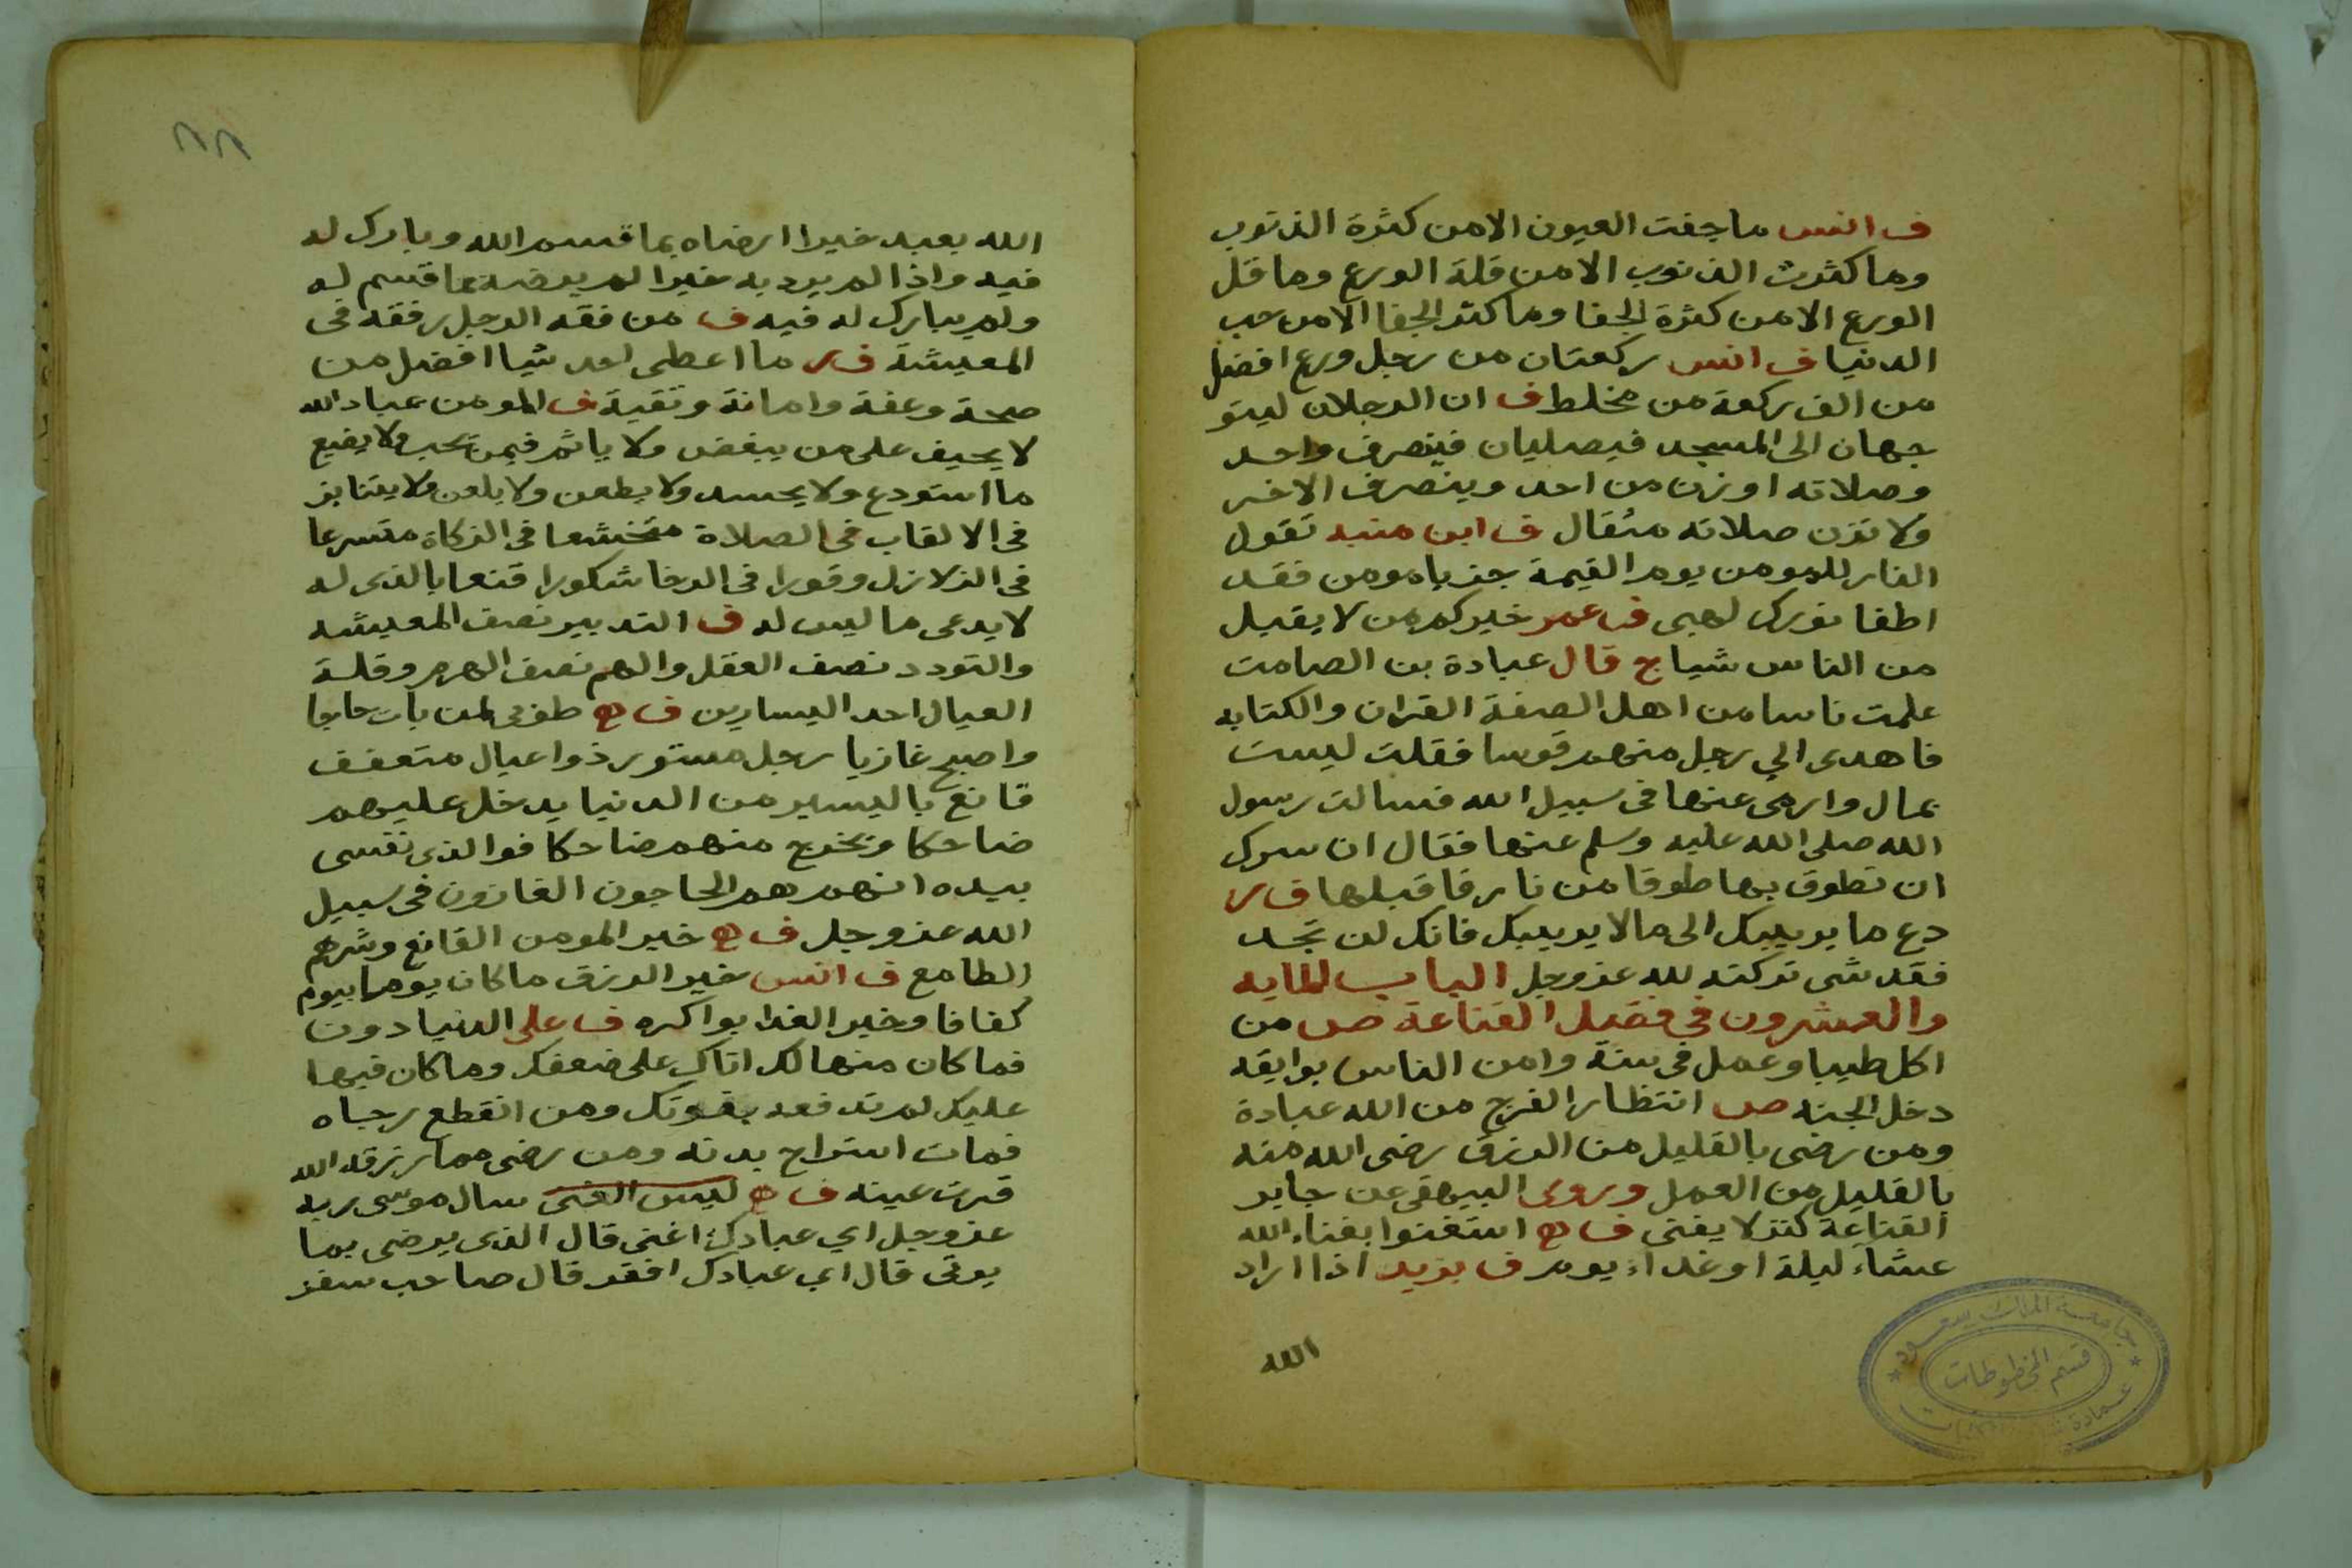 ف انس ما جفت العيون الا من كثرة الذنوب
وما كثرت الذنوب الا من قلة الورع وما قل
الورع الا من كثرة الجفا وما كثر الجفا الا من حب
الدنيا ف انس ركعتان من رجل ورع افضل
من الف ركعة من مخلط ف ان الرجلان ليتو
جهان الى المسجد فيصليان فينصرف واحد
وصلاته اوزن من احد وينصرف الاخر
ولا تزن صلاته مثقال ف ابن منبه تقول
النار للمومن يوم القيمة جز يا مومن فقد
اطفا نورك لهبى ف عمر خيركم من لا يقبل
من الناس شيا ج قال عبادة بن الصامت
علمت ناسا من اهل الصفة القران والكتابه
فاهدى الي رجل منهم قوسا فقلت ليست
بمال وارمى عنها فى سبيل الله فسالت رسول
الله صلى الله عليه وسلم عنها فقال ان سرك
ان تطوق بها طوقا من نار فاقبلها ف ر
دع ما يريبك الى ما لا يريبك فانك لن تجد
فقد شى تركته لله عز وجل الباب المايه
والعشرون في فضيل القناعة ص من
اكل طيبا وعمل فى سنة وامن الناس بوايقه
دخل الجنه ص انتظار الفرج من الله عبادة
ومن رضى بالقليل من الرزق رضى الله منه
بالقليل من العمل وروى البيهقى عن جابر
القناعة كنز لا يفنى ف ه استغنوا بغناء الله
عشاء ليلة او غداء يوم ف يزيد اذا اراد
الله
الله بعبد خيرا ارضاه بما قسم الله وبارك له
فيه واذا لم يرد به خيرا لم يرضه بما قسم له
ولم يبارك له فيه ف من فقه الرجل رفقه فى
المعيشة ف ر ما اعطى احد شيا افضل من
صحة وعفة وامانة وتقية ف المومن عباد الله
لا يحيف على من يبغض ولا ياثم فيمن يحب ولا يضيع
ما استودع ولا يحسد ولا يطعن ولا يلعن ولا يتنابز
فى الالقاب فى الصلاة متخشعا فى الزكاة متسرعا
فى الزلازل وقورا فى الرخا شكورا قنعا بالذى له
لا يدعى ما ليس له ف التدبير نصف المعيشه
والتودد نصف العقل والهم نصف الهرم وقلة
العيال احد اليسارين ف ه طوبى لمن بات حاجا
واصبح غازيا رجل مستور ذوا عيال متعفف
قانع باليسير من الدنيا يدخل عليهم
ضاحكا ويخرج منهم ضاحكا فوالذى نفسى
بيده انهم هم الحاجون الغازون فى سبيل
الله عز وجل ف ه خير المومن القانع وشرهم
الطامع ف انس خير الرزق ما كان يوما بيوم
كفافا وخير الغدا بواكره ف على الدنيا دون
فما كان منها لك اتاك على ضعفك وما كان فيها
عليك لم تدفعه بقوتك ومن انقطع رجاه
فمات استراح بدنه ومن رضى مما رزقه الله
قرت عينه ف ه ليس الغنى سال موسى ربه
عز وجل اي عبادك اغنى قال الذى يرضى بما
يوتى قال اي عبادك افقر قال صاحب سفر
جامعة الملك سعود
قسم المخطوطات